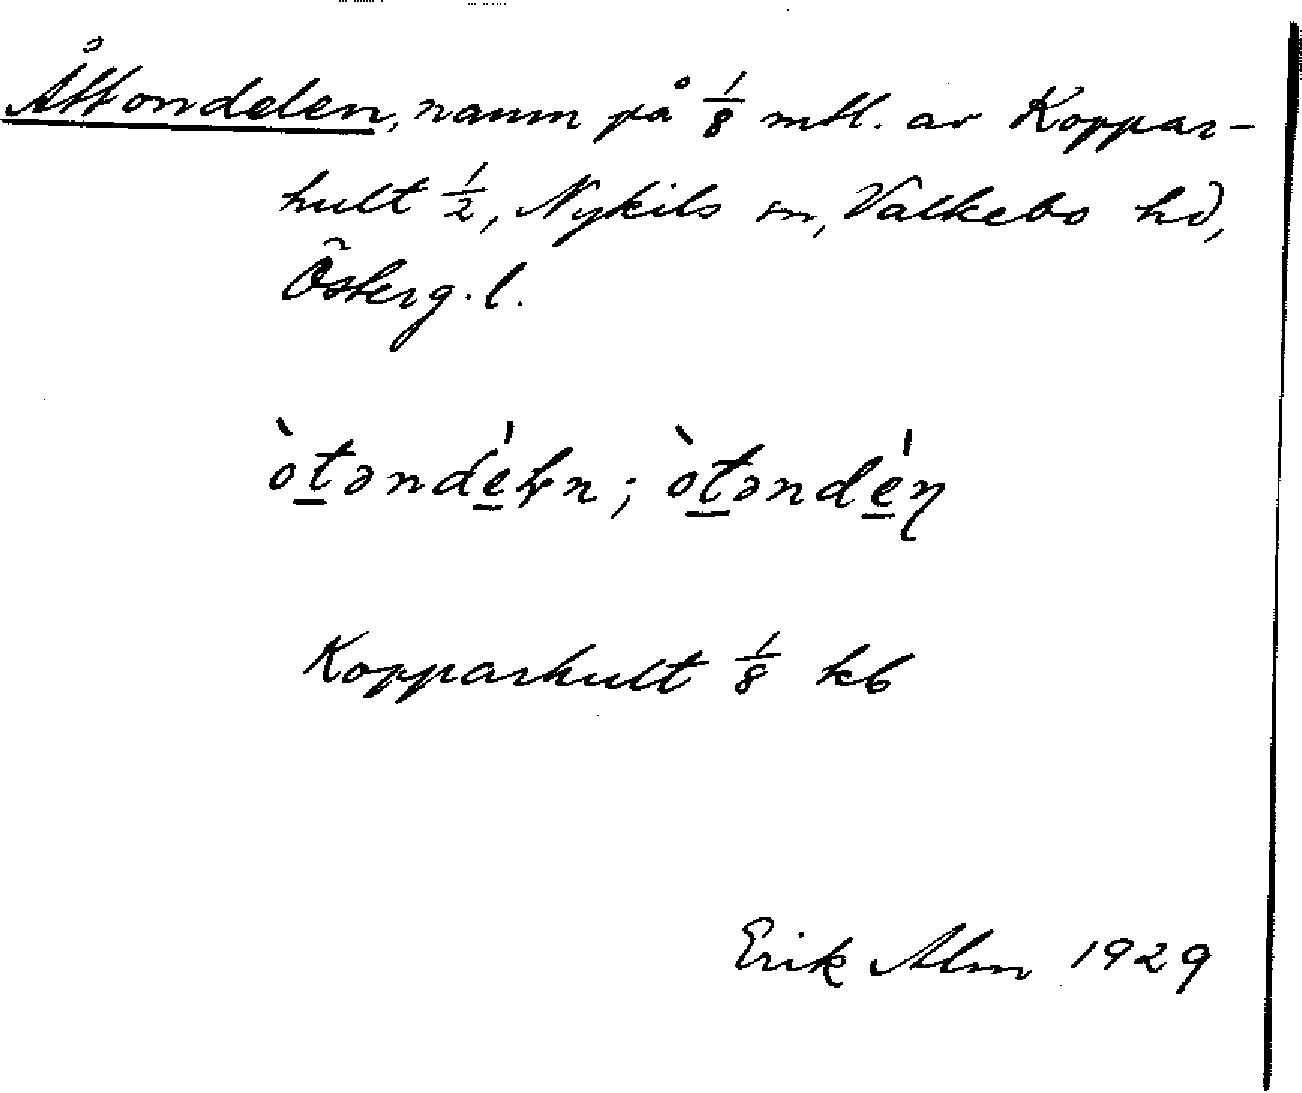 Åttondelen, namn på 1/8 mtl. av Koppar-
hult 1/2, Nykils sn, Valkebo hd,
Österg. l.
òt̲əndé̲ɫn; òt̲əndé̲ŋ
Kopparhult 1/8 kb
Erik Alm 1929